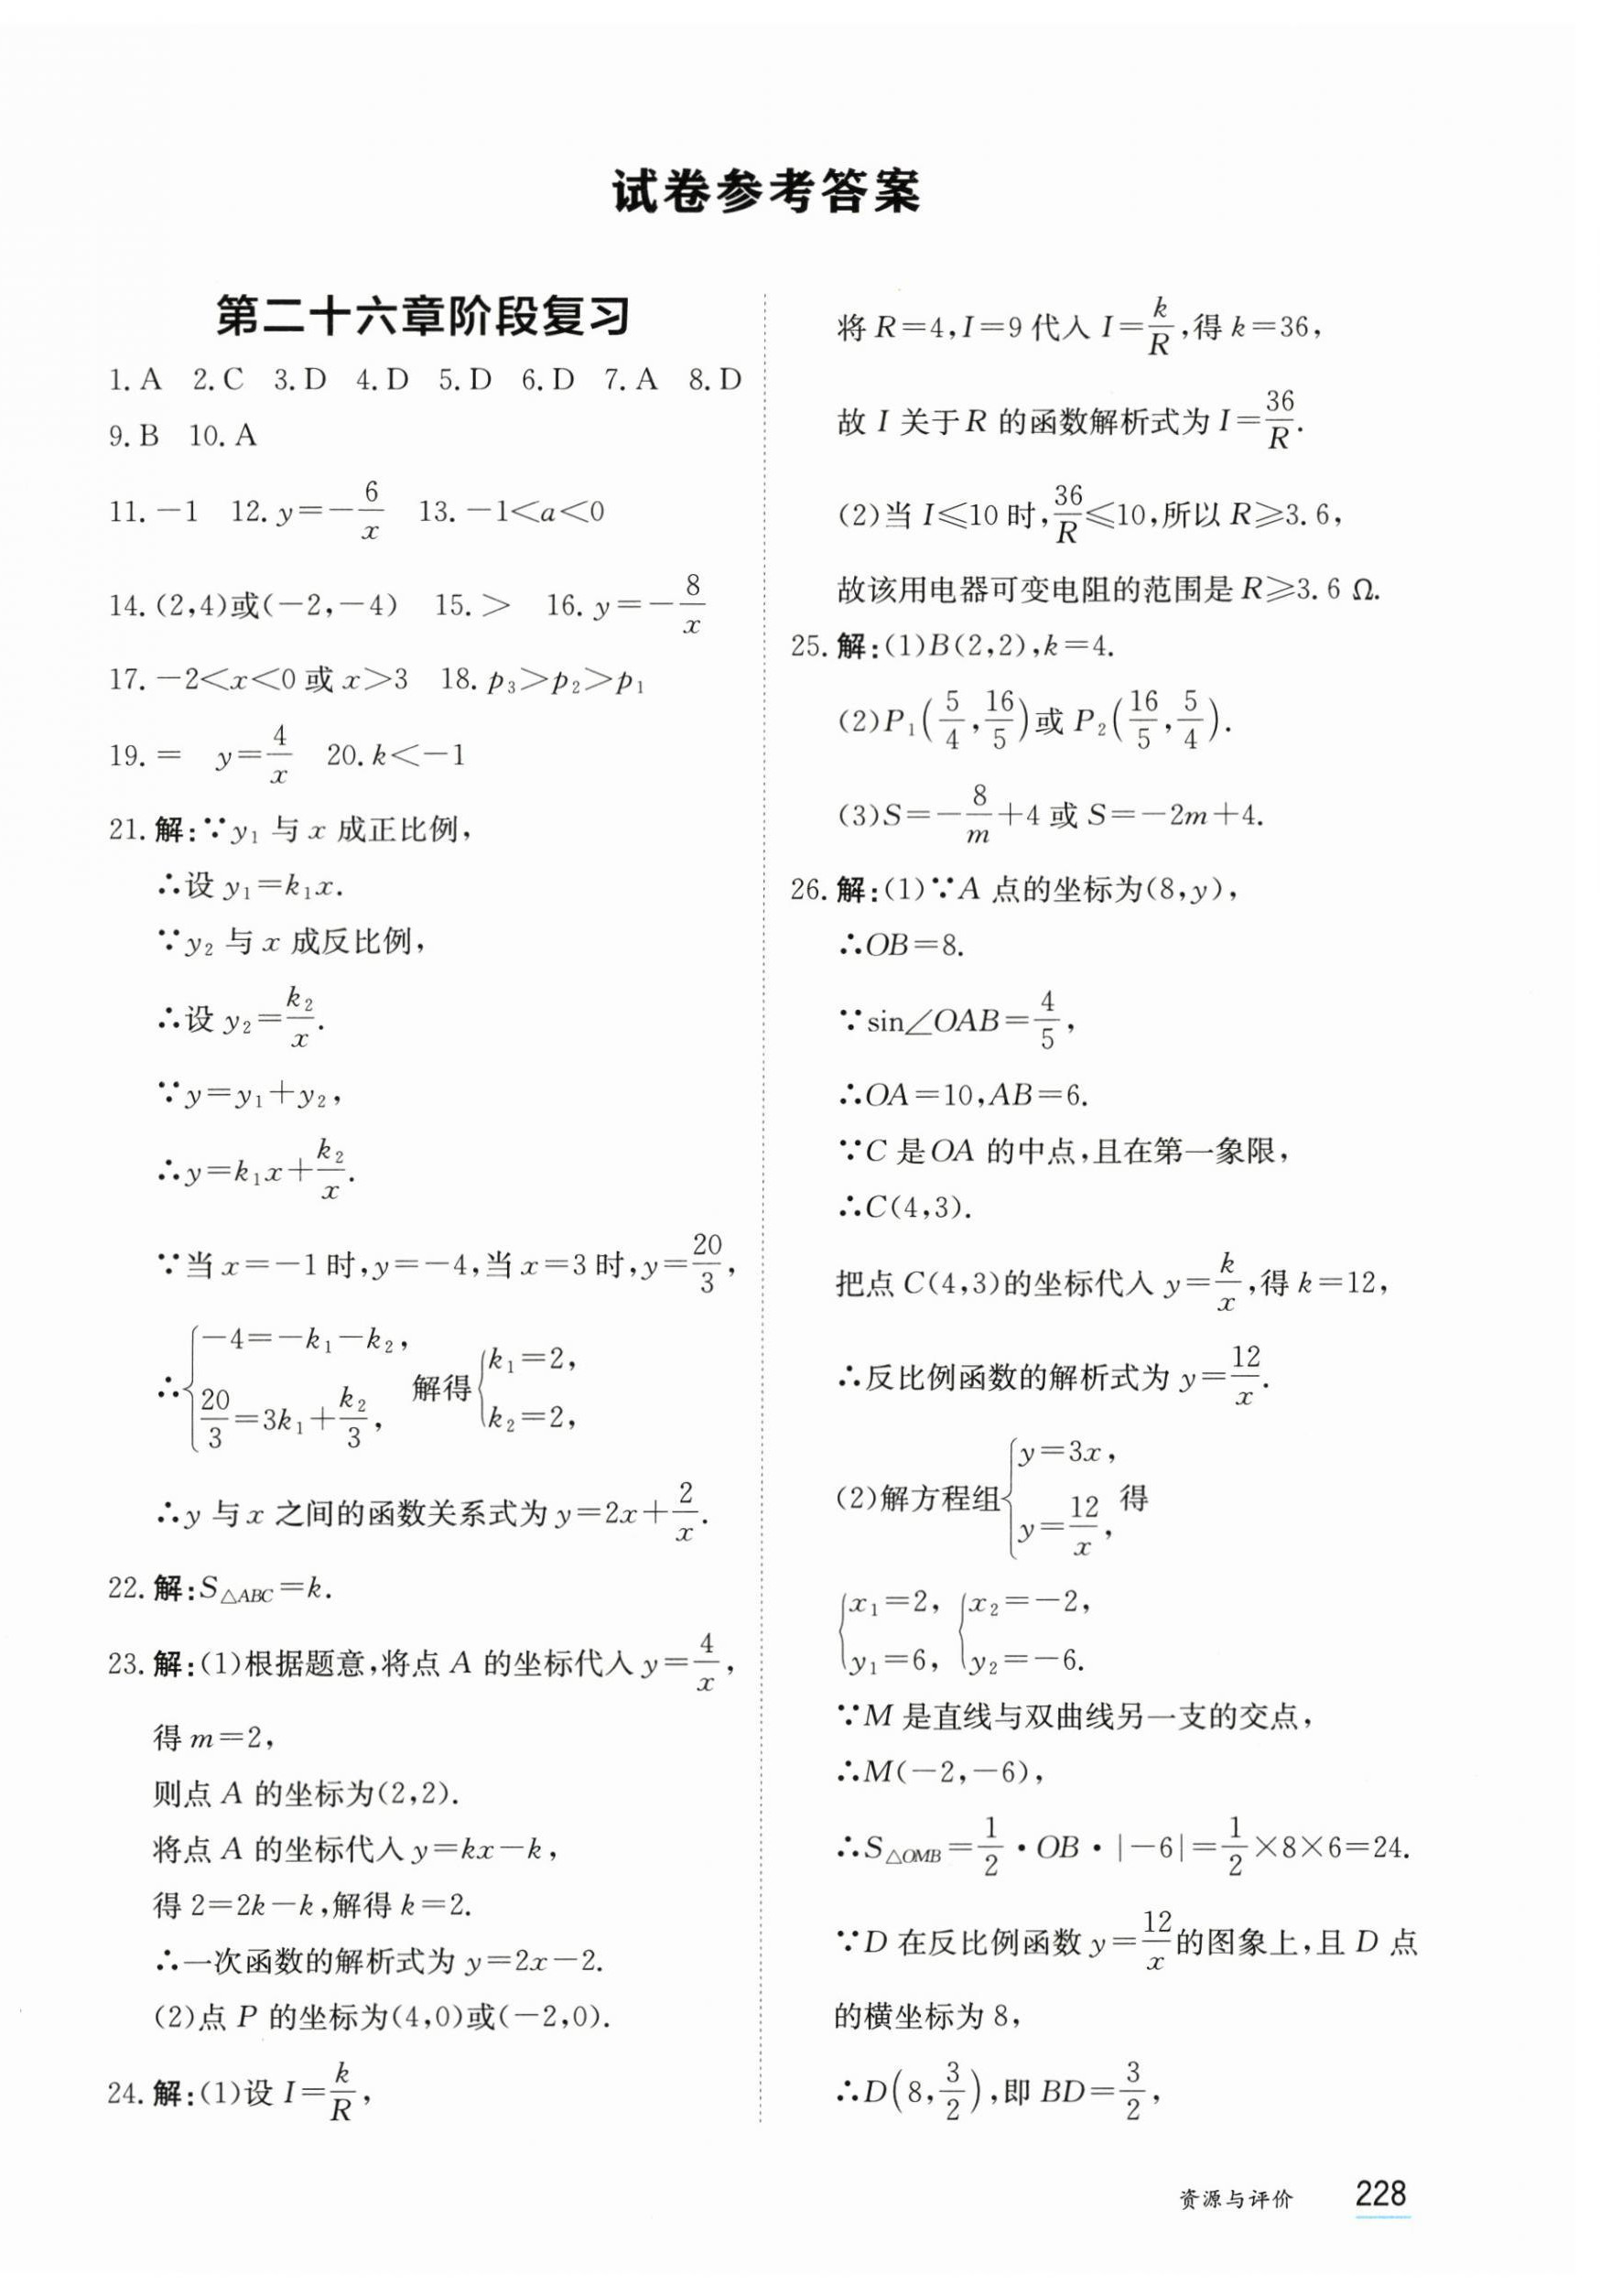 试卷参考答案
第二十六章阶段复习
1. A 2. C 3. D 4. D 5. D 6. D 7. A 8. D
9. B 10. A
11. －1 12. y＝－6/x 13. －1＜a＜0
14. (2,4)或(－2,－4) 15. ＞ 16. y＝－8/x
17. －2＜x＜0 或 x＞3 18. p₃＞p₂＞p₁
19. ＝ y＝4/x 20. k＜－1
21. 解:∵y₁ 与 x 成正比例,
∴设 y₁＝k₁x.
∵y₂ 与 x 成反比例,
∴设 y₂＝k₂/x.
∵y＝y₁＋y₂,
∴y＝k₁x＋k₂/x.
∵当 x＝－1 时,y＝－4,当 x＝3 时,y＝20/3,
∴{－4＝－k₁－k₂, 20/3＝3k₁＋k₂/3, 解得{k₁＝2, k₂＝2,
∴y 与 x 之间的函数关系式为 y＝2x＋2/x.
22. 解:S△ABC＝k.
23. 解:(1)根据题意,将点 A 的坐标代入 y＝4/x,
得 m＝2,
则点 A 的坐标为(2,2).
将点 A 的坐标代入 y＝kx－k,
得 2＝2k－k,解得 k＝2.
∴一次函数的解析式为 y＝2x－2.
(2)点 P 的坐标为(4,0)或(－2,0).
24. 解:(1)设 I＝k/R,
将 R＝4,I＝9 代入 I＝k/R,得 k＝36,
故 I 关于 R 的函数解析式为 I＝36/R.
(2)当 I≤10 时,36/R≤10,所以 R≥3.6,
故该用电器可变电阻的范围是 R≥3.6 Ω.
25. 解:(1)B(2,2),k＝4.
(2)P₁(5/4,16/5)或 P₂(16/5,5/4).
(3)S＝－8/m＋4 或 S＝－2m＋4.
26. 解:(1)∵A 点的坐标为(8,y),
∴OB＝8.
∵sin∠OAB＝4/5,
∴OA＝10,AB＝6.
∵C 是 OA 的中点,且在第一象限,
∴C(4,3).
把点 C(4,3)的坐标代入 y＝k/x,得 k＝12,
∴反比例函数的解析式为 y＝12/x.
(2)解方程组{y＝3x, y＝12/x, 得
{x₁＝2, y₁＝6, {x₂＝－2, y₂＝－6.
∵M 是直线与双曲线另一支的交点,
∴M(－2,－6),
∴S△OMB＝1/2·OB·|－6|＝1/2×8×6＝24.
∵D 在反比例函数 y＝12/x的图象上,且 D 点
的横坐标为 8,
∴D(8,3/2),即 BD＝3/2,
资源与评价 228